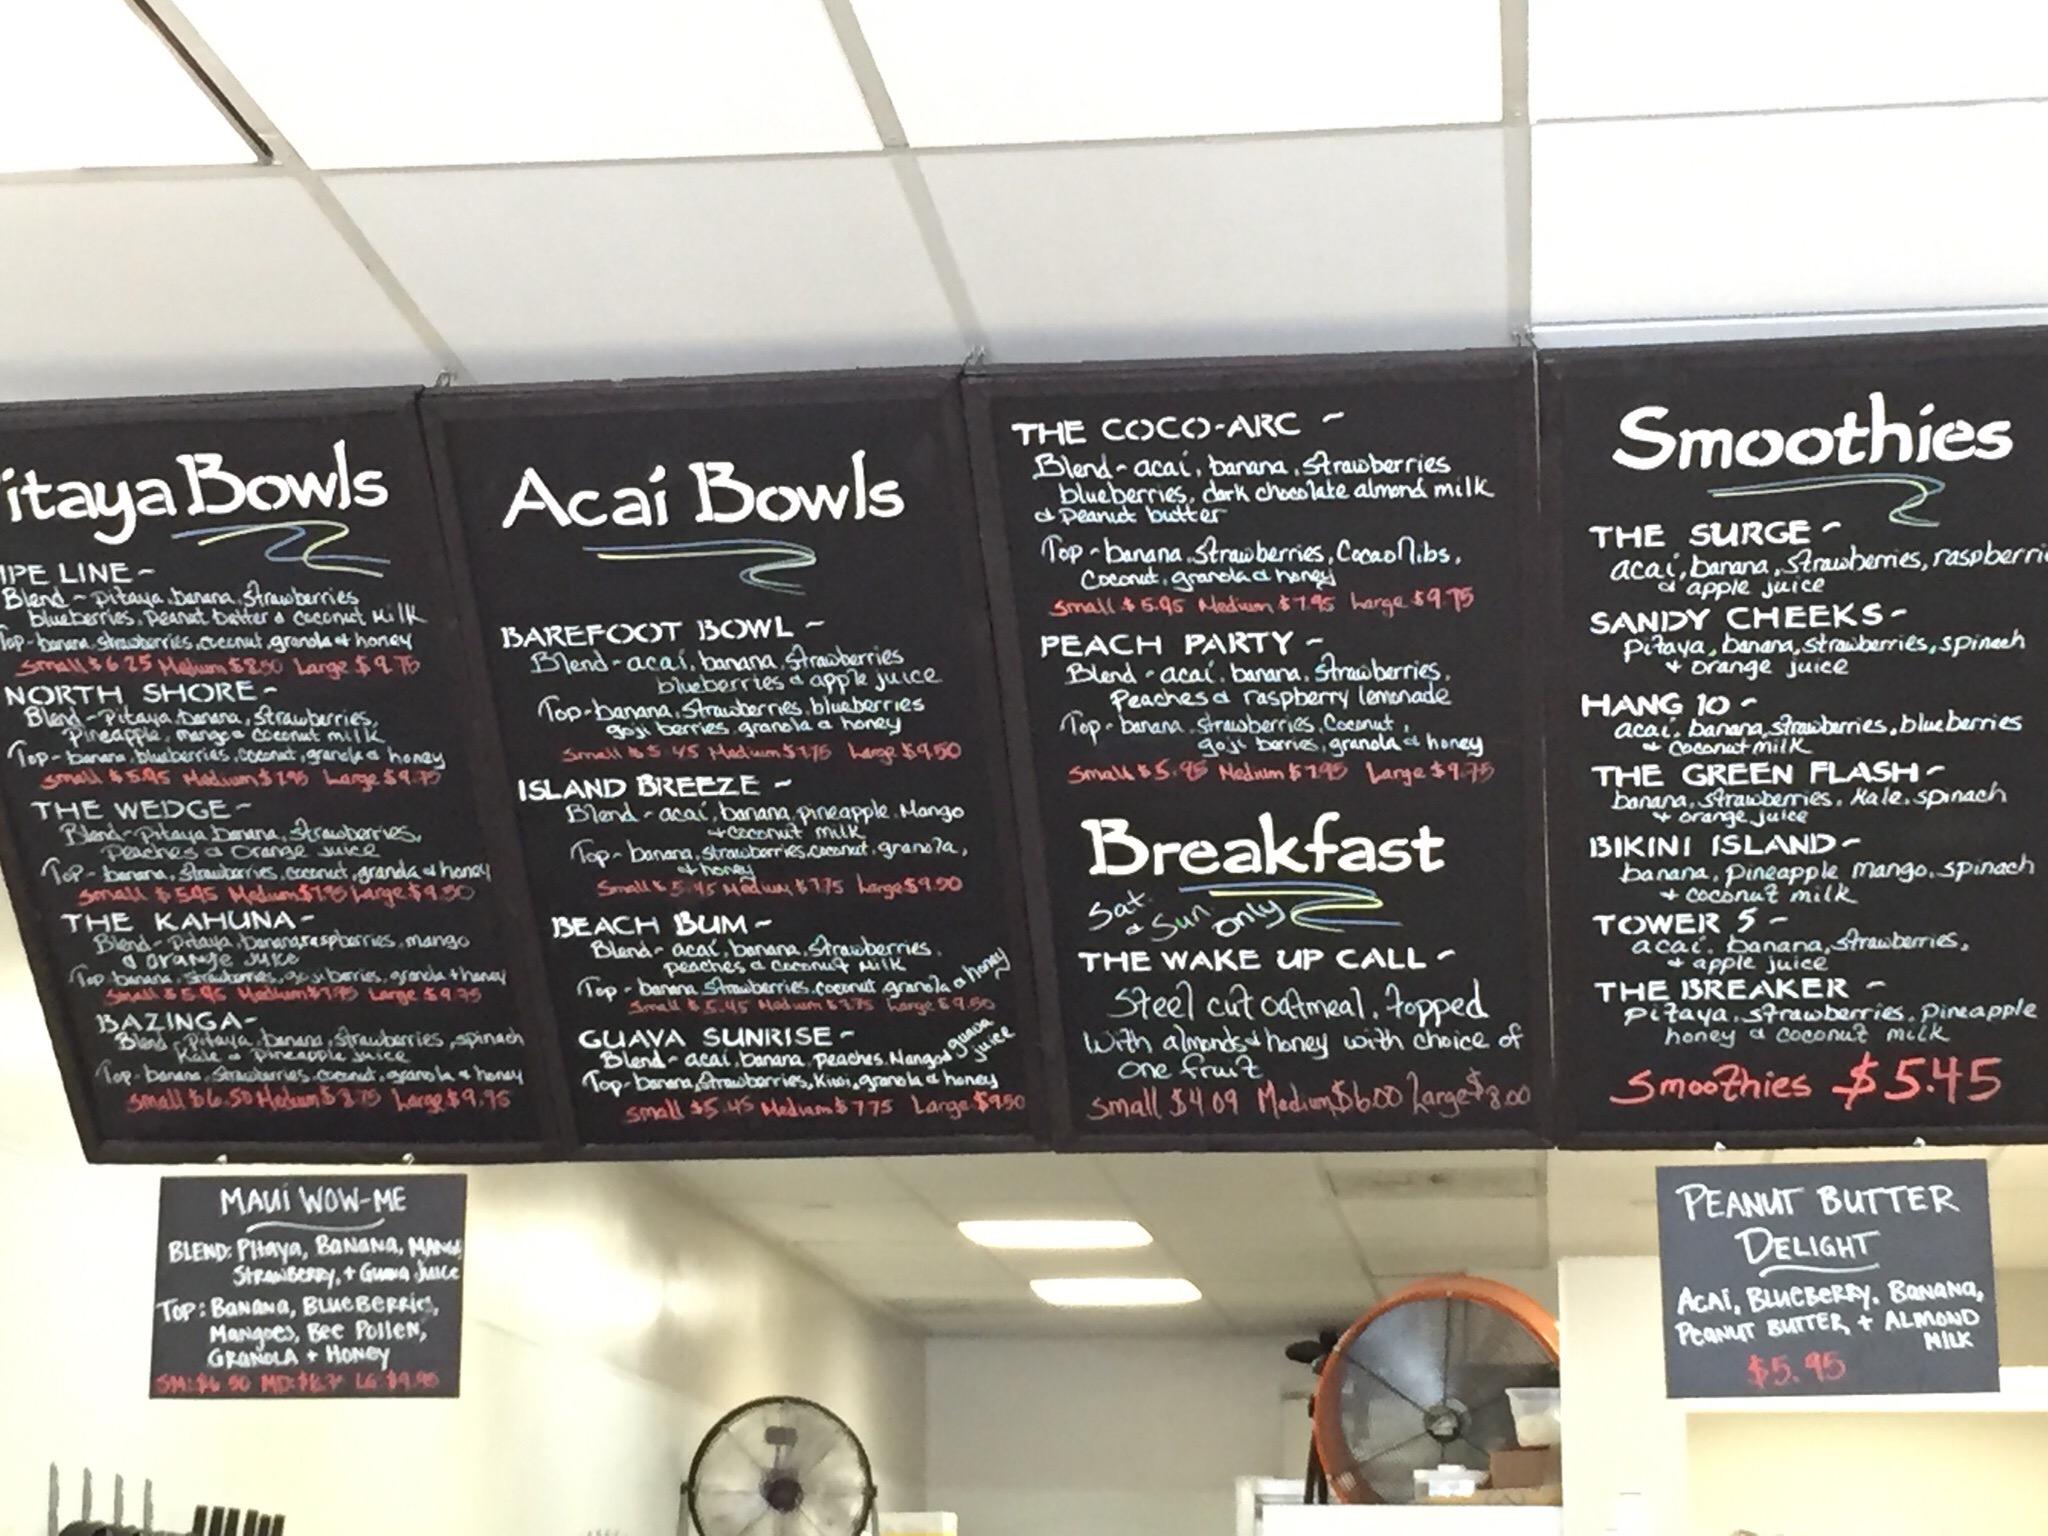 itaya Bowls
IPE LINE ~
Blend ~ pitaya, banana, strawberries
blueberries, peanut butter & coconut milk
Top - banana, strawberries, coconut, granola & honey
Small $6.25 Medium $8.50 Large $9.75
NORTH SHORE ~
Blend - Pitaya, banana, strawberries,
Pineapple, mango & coconut milk
Top - banana, blueberries, coconut, granola & honey
Small $5.95 Medium $7.95 Large $9.75
THE WEDGE ~
Blend - Pitaya, banana, strawberries,
Peaches & Orange juice
Top - banana, strawberries, coconut, granola & honey
Small $5.95 Medium $7.95 Large $9.50
THE KAHUNA ~
Blend - Pitaya, banana, raspberries, mango
& orange juice
Top - banana, strawberries, goji berries, granola + honey
Small $5.95 Medium $7.95 Large $9.75
BAZINGA ~
Blend - Pitaya, banana, strawberries, spinach
Kale & Pineapple juice
Top - banana, strawberries, coconut, granola & honey
Small $6.50 Medium $8.75 Large $9.95
MAUI WOW-ME
BLEND: Pitaya, BANANA, MANGO,
STRAWBERRY, + GUAVA JUICE
TOP: BANANA, BLUEBERRIES,
Mangoes, Bee Pollen,
GRANOLA + HONEY
Acai Bowls
BAREFOOT BOWL ~
Blend - acai, banana, strawberries
blueberries & apple juice
Top - banana, strawberries, blueberries
goji berries, granola & honey
Small $5.45 Medium $7.75 Large $9.50
ISLAND BREEZE ~
Blend - acai, banana, pineapple, Mango
+ coconut milk
Top - banana, strawberries, coconut, granola,
& honey
Small $5.45 Medium $7.75 Large $9.50
BEACH BUM ~
Blend - acai, banana, strawberries,
peaches & coconut milk
Top - banana, strawberries, coconut, granola & honey
Small $5.45 Medium $7.75 Large $9.50
GUAVA SUNRISE ~
Blend - acai, banana, peaches, Mango & guava juice
Top - banana, strawberries, kiwi, granola & honey
Small $5.45 Medium $7.75 Large $9.50
THE COCO-ARC ~
Blend - acai, banana, strawberries
blueberries, dark chocolate almond milk
& Peanut butter
Top - banana, strawberries, Cacao Nibs,
Coconut, granola & honey
Small $5.95 Medium $7.95 Large $9.75
PEACH PARTY ~
Blend - acai, banana, strawberries,
Peaches & raspberry lemonade
Top - banana, strawberries, Coconut,
goji berries, granola & honey
Small $5.95 Medium $7.95 Large $9.75
Breakfast
Sat. & Sun only
THE WAKE UP CALL ~
Steel cut oatmeal, topped
with almonds & honey with choice of
one fruit
Small $4.09 Medium $6.00 Large $8.00
Smoothies
THE SURGE ~
acai, banana, strawberries, raspberri
& apple juice
SANDY CHEEKS ~
pitaya, banana, strawberries, spinach
+ orange juice
HANG 10 ~
acai, banana, strawberries, blueberries
& coconut milk
THE GREEN FLASH ~
banana, strawberries, Kale, spinach
+ orange juice
BIKINI ISLAND ~
banana, pineapple mango, spinach
+ coconut milk
TOWER 5 ~
acai, banana, strawberries,
+ apple juice
THE BREAKER ~
pitaya, strawberries, pineapple
honey & coconut milk
Smoothies $5.45
PEANUT BUTTER
DELIGHT
ACAI, BLUEBERRY, BANANA,
PEANUT BUTTER, + ALMOND
MILK
$5.95